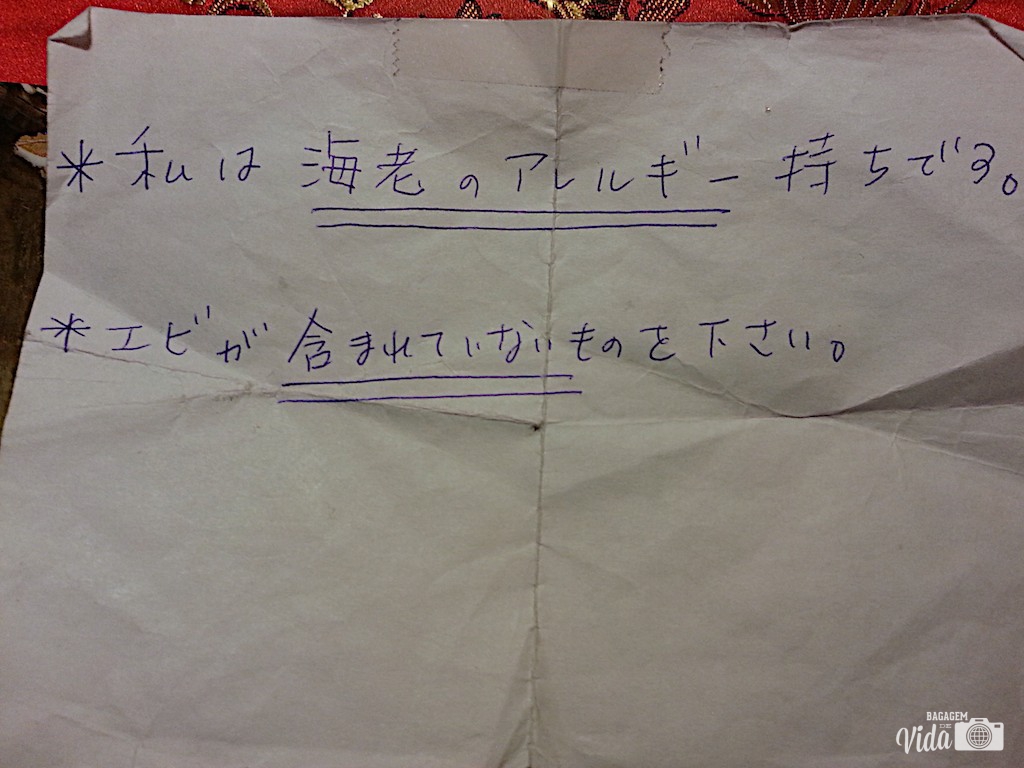 *私は海老のアレルギー持ちです。
*エビが含まれていないものを下さい。
BAGAGEM
DE
Vida